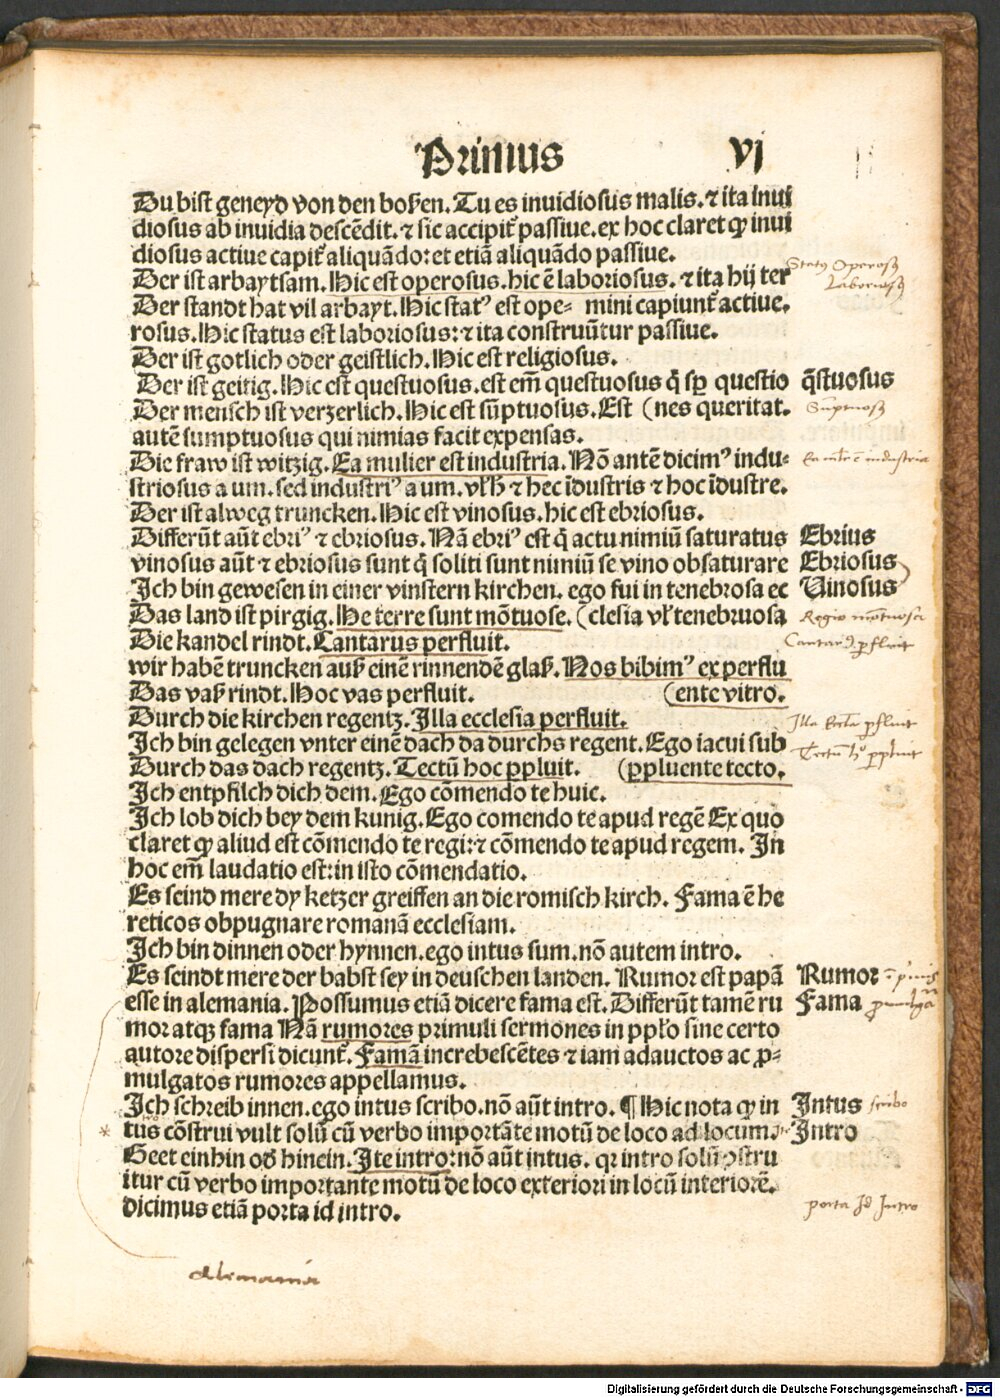 Primus VI
Du bist geneyd von den boßen. Tu es inuidiosus malis. ⁊ ita inui
diosus ab inuidia descēdit. ⁊ sic accipit᷑ passiue. ex hoc claret ꝙ inui
diosus actiue capit᷑ aliquādo: et etiā aliquādo passiue.
Der ist arbaytsam. Hic est operosus. hic ē laboriosus. ⁊ ita hij ter
Statꝰ Operosꝰ
Laboriosꝰ
Der standt hat vil arbayt. Hic statꝰ est ope- mini capiunt᷑ actiue.
rosus. Hic status est laboriosus: ⁊ ita construūtur passiue.
Der ist gotlich oder geistlich. Hic est religiosus.
Der ist geitig. Hic est questuosus. est em̄ questuosus q̄ sꝑ questio q̄stuosus
Der mensch ist verzerlich. Hic est sūptuosus. Est (nes queritat.
Sūptuosꝰ
autē sumptuosus qui nimias facit expensas.
Die fraw ist witzig. Ea mulier est industria. Nō antē dicimꝰ indu-
Ea ml'r ē industria
striosus a um. sed industriꝰ a um. vl'h ⁊ hec īdustris ⁊ hoc īdustre.
Der ist alweg truncken. Hic est vinosus. hic est ebriosus.
Differūt aūt ebriꝰ ⁊ ebriosus. Nā ebriꝰ est q̄ actu nimiū saturatus Ebrius
vinosus aūt ⁊ ebriosus sunt q̄ soliti sunt nimiū se vino obsaturare Ebriosus
Ich bin gewesen in einer vinstern kirchen. ego fui in tenebrosa ec Vinosus
Das land ist pirgig. He terre sunt mōtuose. (clesia vl' tenebruosa
Regio mōtuosa
Die kandel rindt. Cantarus perfluit.
Cantarꝰ ꝑfluit
wir habē truncken auß einē rinnendē glaß. Nos bibimꝰ ex perflu
Das vaß rindt. Hoc vas perfluit. (ente vitro.
Durch die kirchen regentz. Illa ecclesia perfluit.
Illa Eccl'ia ꝑfluit
Ich bin gelegen vnter einē dach da durchs regent. Ego iacui sub
Tectum hoc ꝑpluit
Durch das dach regentz. Tectū hoc ꝑpluit. (ꝑpluente tecto.
Ich entpfilch dich dem. Ego cōmendo te huic.
Ich lob dich bey dem kunig. Ego comendo te apud regē Ex quo
claret ꝙ aliud est cōmendo te regi: ⁊ cōmendo te apud regem. In
hoc em̄ laudatio est: in isto cōmendatio.
Es seind mere dy ketzer greiffen an die romisch kirch. Fama ē he
reticos obpugnare romanā ecclesiam.
Ich bin dinnen oder hynnen. ego intus sum. nō autem intro.
Es seindt mere der babst sey in deuschen landen. Rumor est papā Rumor
esse in alemania. Possumus etiā dicere fama est. Differūt tamē ru Fama
mor atqꝫ fama Nā rumores primuli sermones in ppl'o sine certo
autore dispersi dicunt᷑. Famā increbescētes ⁊ iam adauctos ac ꝓ-
mulgatos rumores appellamus.
Ich schreib innen. ego intus scribo. nō aūt intro. ¶ Hic nota ꝙ in Intus scribo
tus cōstrui vult solū cū verbo importāte motū de loco ad locum. Intro
Geet einhin od' hinein. Ite intro: nō aūt intus. qꝛ intro solū ꝯstru
itur cū verbo importante motū de loco exteriori in locū interiorē.
dicimus etiā porta id intro.
porta Id Intro
Alemania
Digitalisierung gefördert durch die Deutsche Forschungsgemeinschaft - DFG